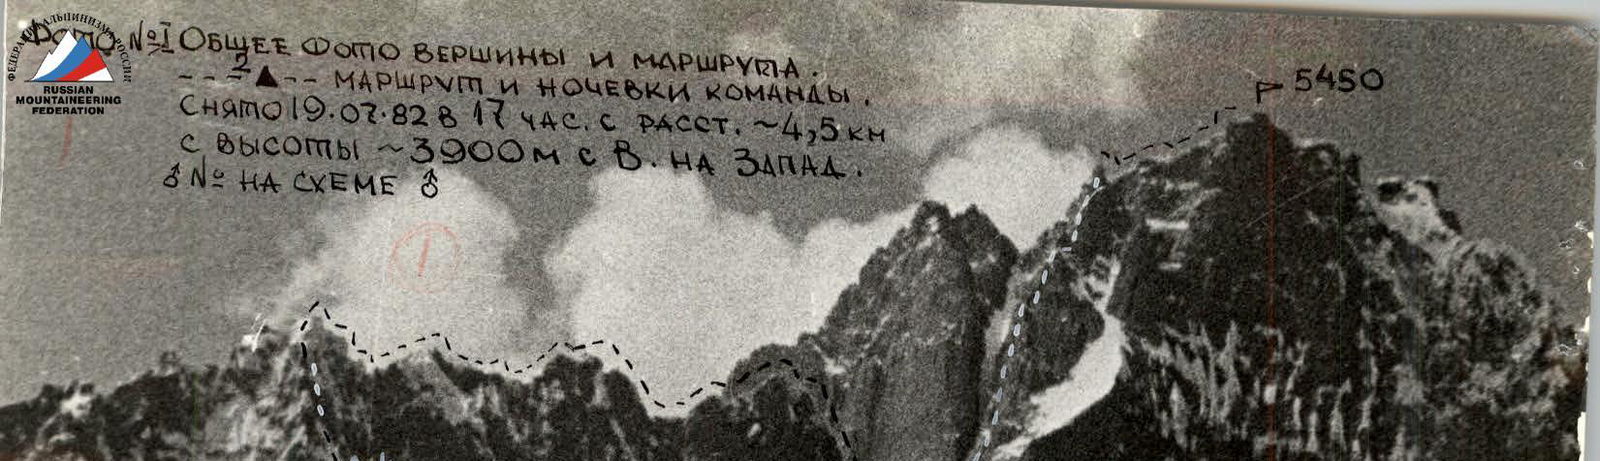 Фото №I Общее фото вершины и маршрута.
2
---▲-- маршрут и ночевки команды.
Снято 19.07.82 в 17 час. с расст. ~4,5 км
с высоты ~3900м с В. на Запад.
♂ № на схеме ♂
5450
1
ФЕДЕРАЦИЯ АЛЬПИНИЗМА РОССИИ
RUSSIAN
MOUNTAINEERING
FEDERATION